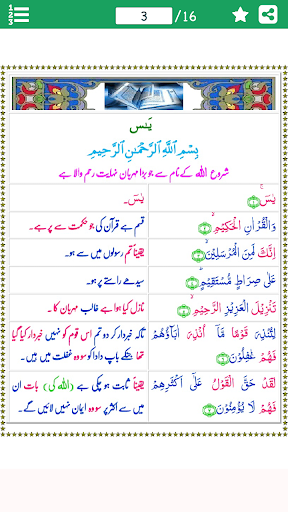 1
2
3
3 /16
یٰسٓ
بِسْمِ اللّٰهِ الرَّحْمٰنِ الرَّحِیْمِ
شروع اللہ کے نام سے جو بڑا مہربان نہایت رحم والا ہے
یٰسٓ ۚ
یٰسٓ۔
وَالْقُرْاٰنِ الْحَكِیْمِ ۙ
قسم ہے قرآن کی جو حکمت سے پر ہے۔
اِنَّكَ لَمِنَ الْمُرْسَلِیْنَ ۙ
یقیناً تم رسولوں میں سے ہو۔
عَلٰی صِرَاطٍ مُّسْتَقِیْمٍ ؕ
سیدھے راستے پر ہو۔
تَنْزِیْلَ الْعَزِیْزِ الرَّحِیْمِ ۙ
نازل کیا ہوا ہے غالب مہربان کا۔
لِتُنْذِرَ قَوْمًا مَّاۤ اُنْذِرَ اٰبَآؤُهُمْ
فَهُمْ غٰفِلُوْنَ
تاکہ خبردار کر دو تم اس قوم کو نہیں خبردار کیا گیا
تھا جنکے باپ دادا کو سو وہ غفلت میں ہیں۔
لَقَدْ حَقَّ الْقَوْلُ عَلٰۤی اَكْثَرِهِمْ
فَهُمْ لَا یُؤْمِنُوْنَ
یقیناً ثابت ہو چکی ہے (اللہ کی) بات ان
میں سے اکثر پر سو وہ ایمان نہیں لائیں گے۔